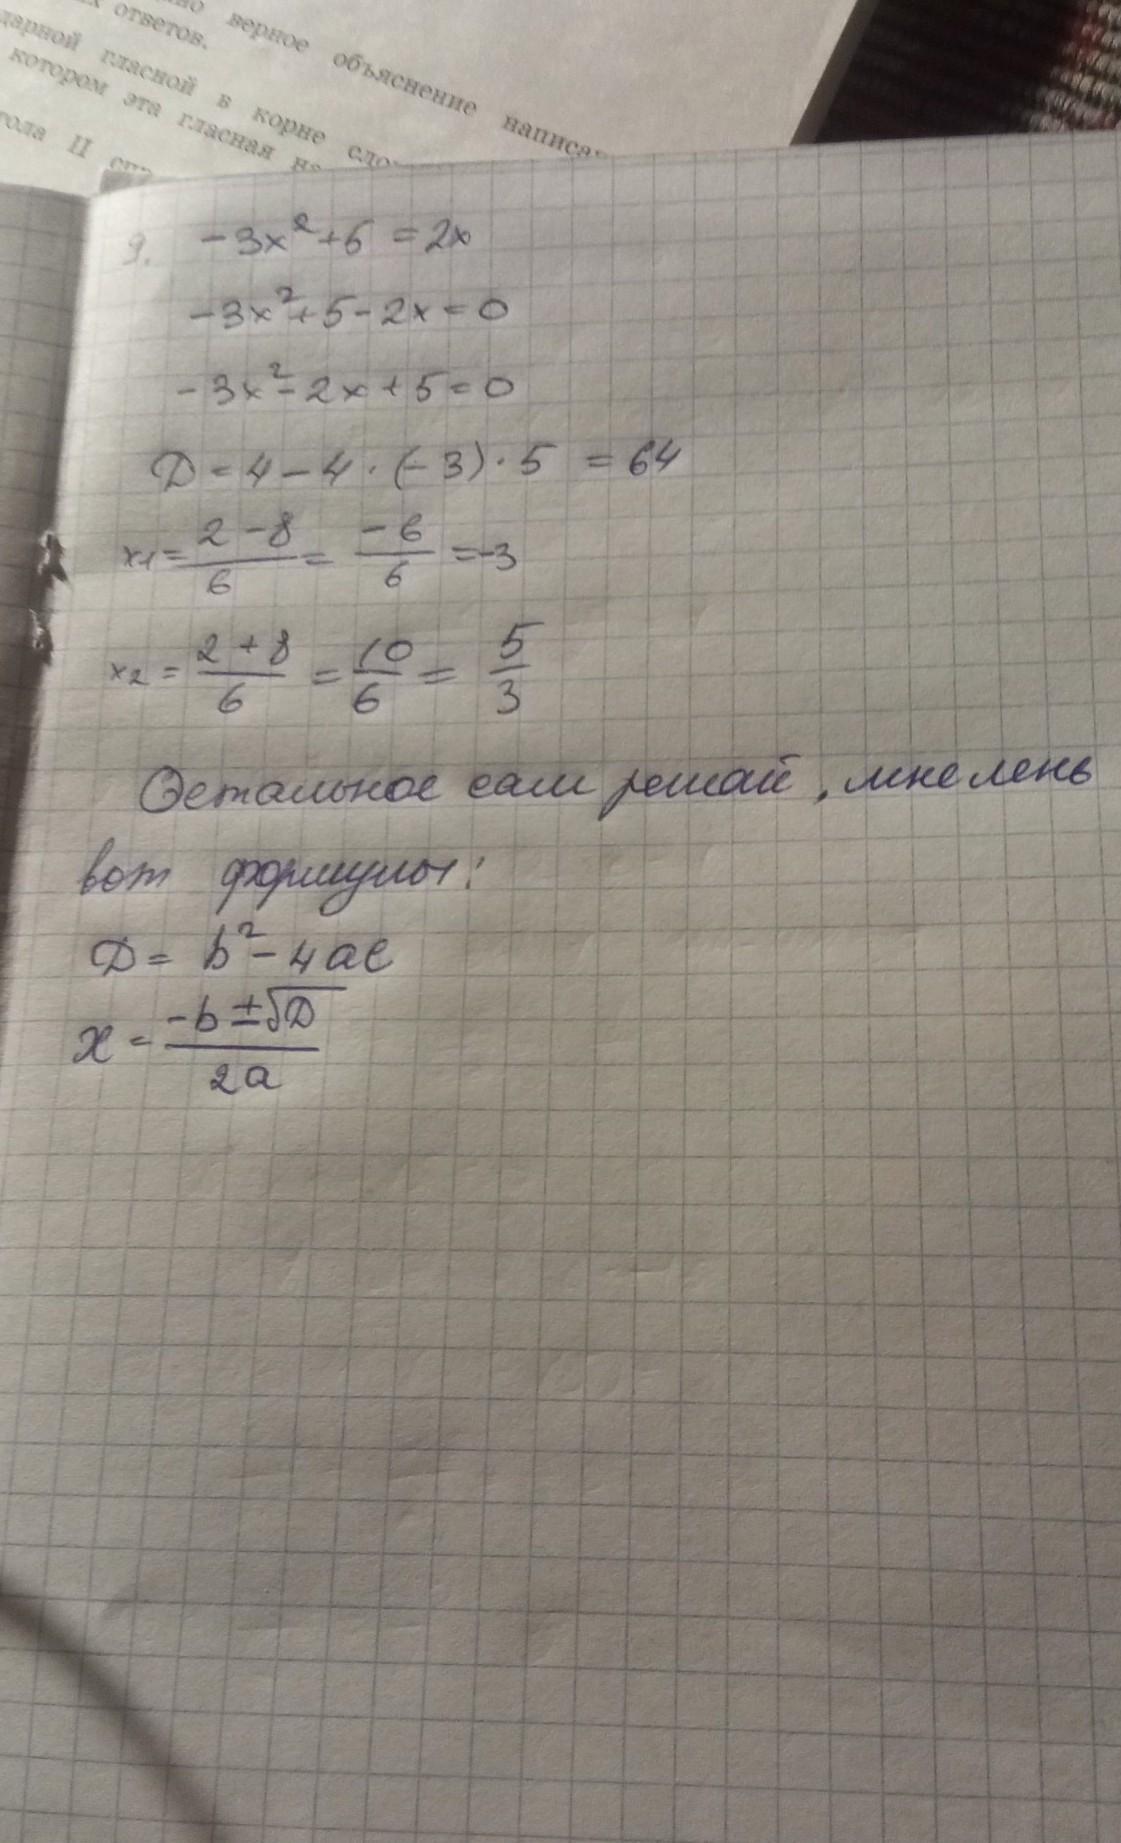 верное объяснение написа
ответов.
дарной гласной в корне сло
котором эта гласная
гола II
9. -3x²+5 = 2x
-3x²+5-2x=0
-3x²-2x+5=0
D=4-4·(-3)·5 = 64
x1= 2-8/6 = -6/6 =-3
x2= 2+8/6 = 10/6 = 5/3
Остальное сам решай, мне лень
вот формулы:
D= b²-4ac
x= -b±√D/2a